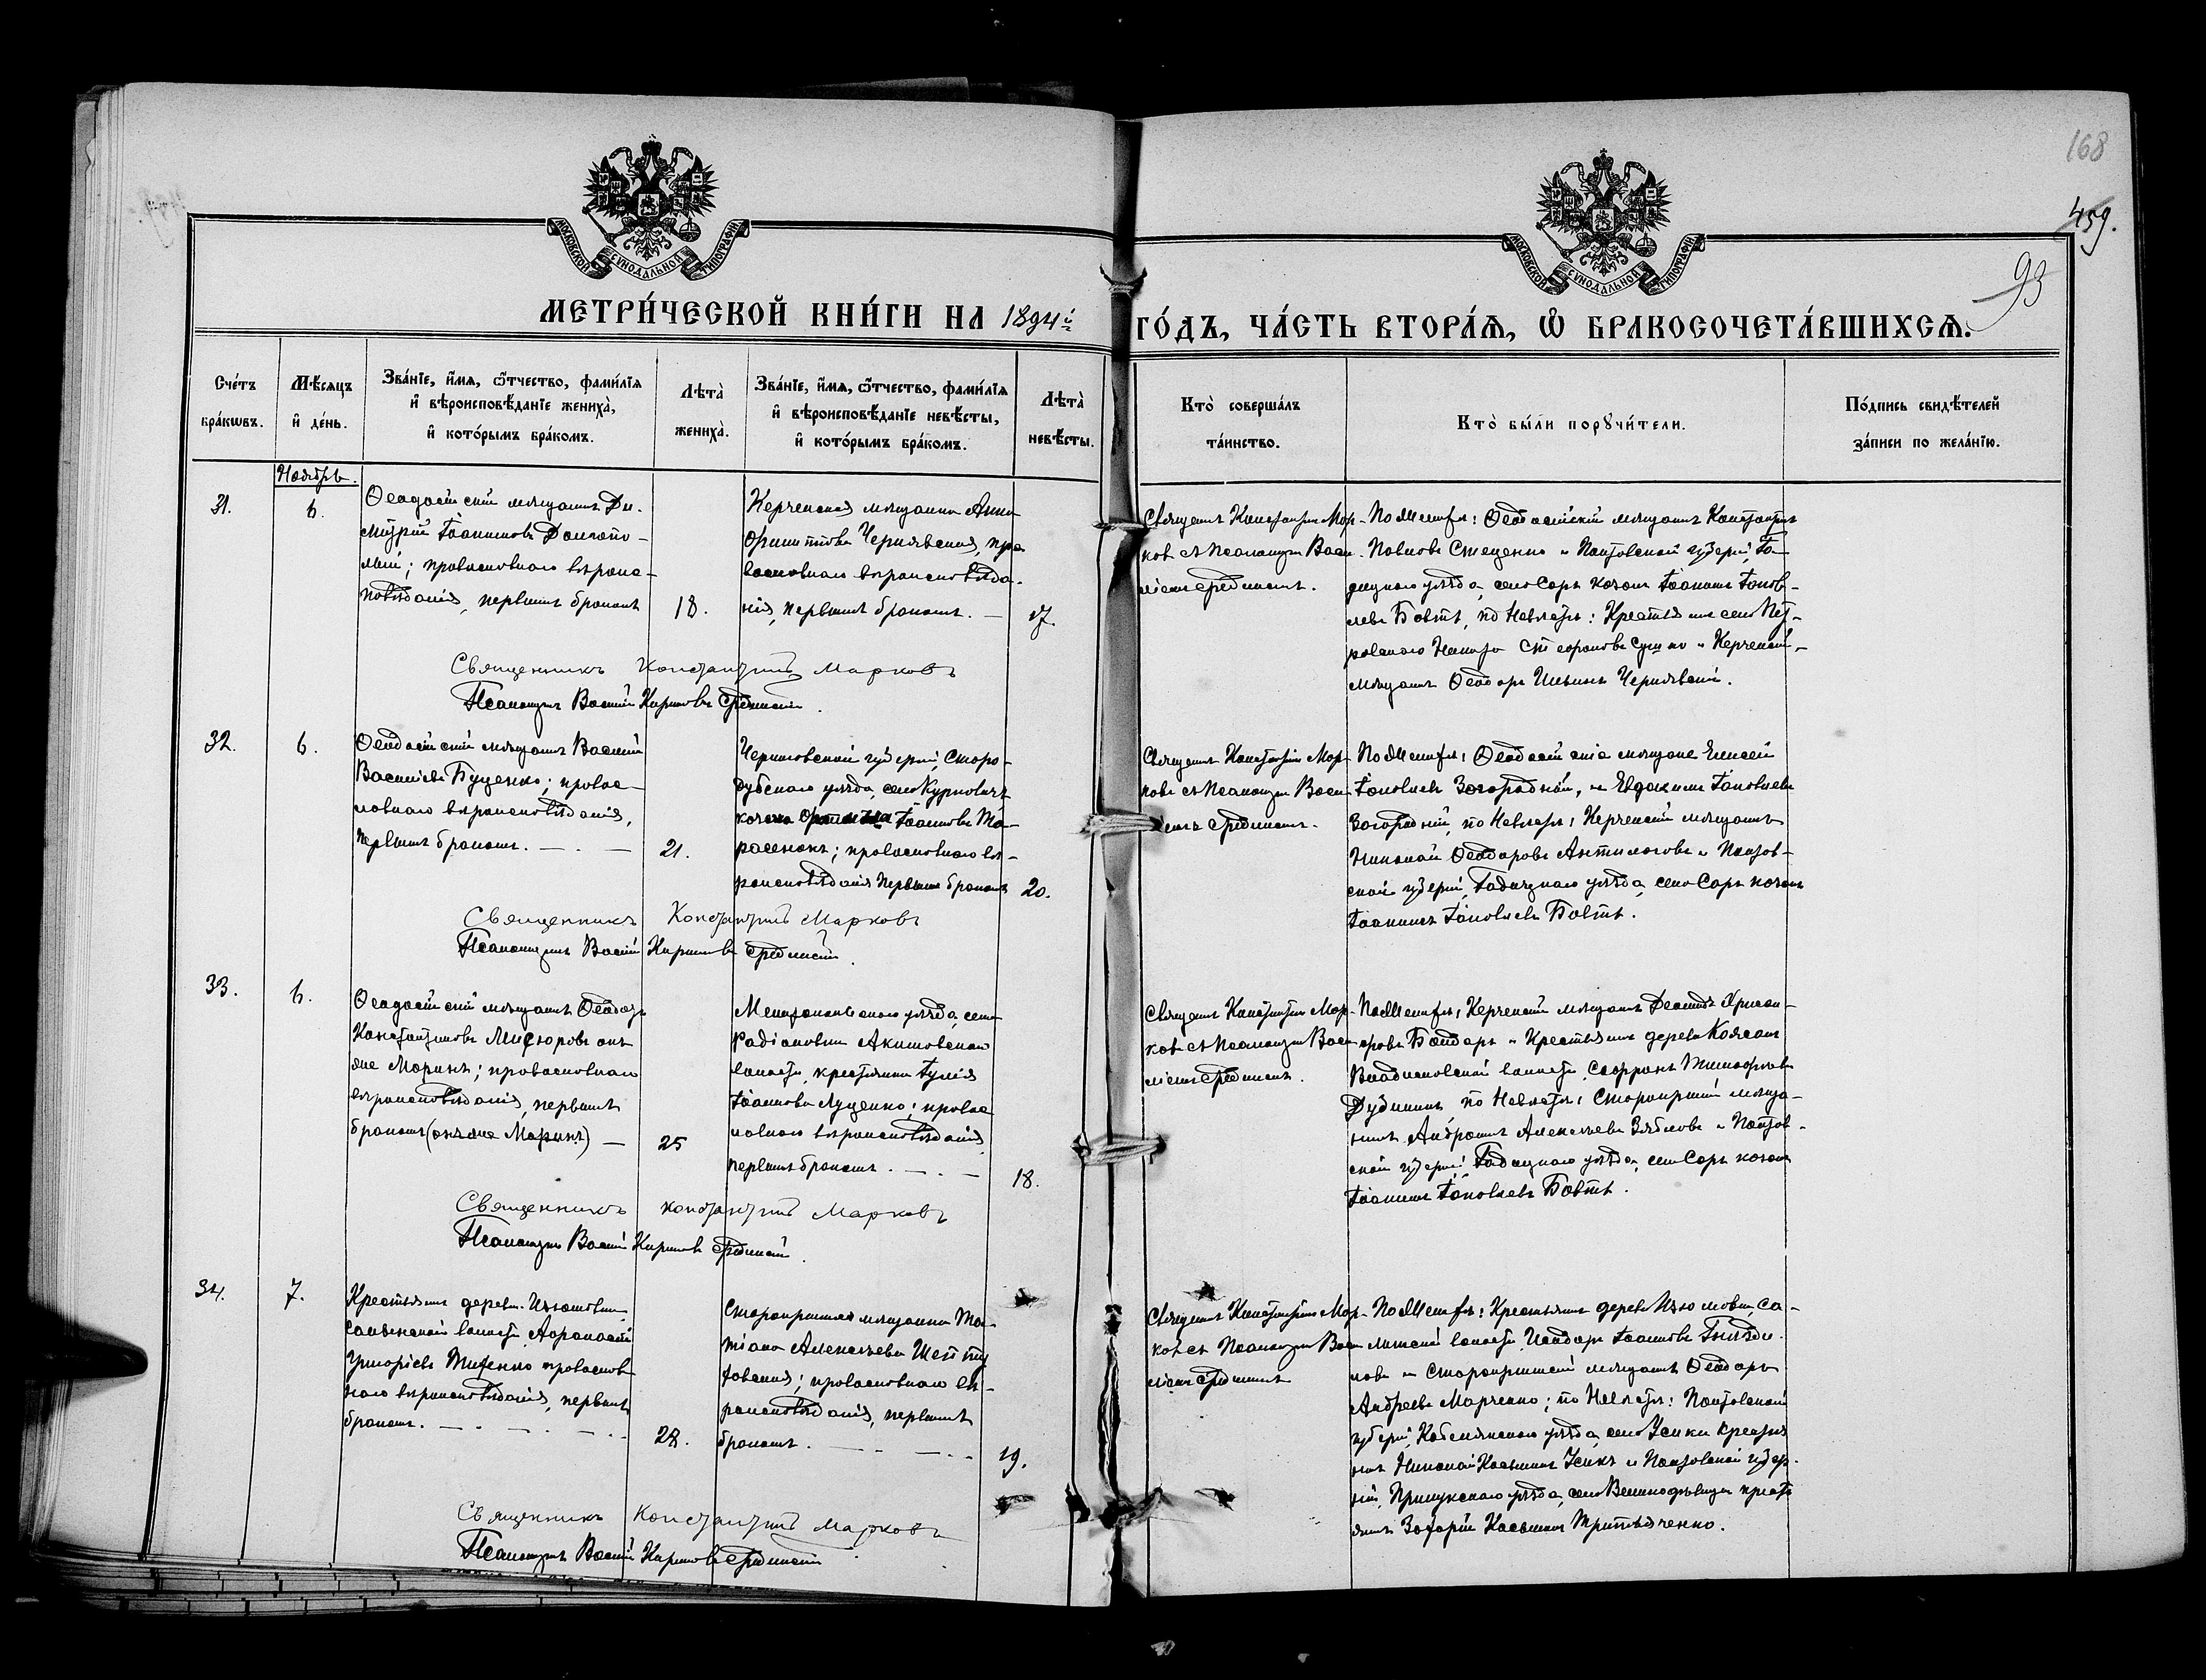 168
459.
93
МОСКОВСКОЙ СѴНОДАЛЬНОЙ ТИПОГРАФІИ
МОСКОВСКОЙ СѴНОДАЛЬНОЙ ТИПОГРАФІИ
МЕТРИ́ЧЕСКОЙ КНИ́ГИ НА 1894й ГО́ДЪ, ЧА́СТЬ ВТОРА́Ѧ, Ѿ БРАКОСОЧЕТА́ВШИХСѦ.
Сче́тъ бра́кѡвъ.
Мѣ́сяцъ и҆ де́нь.
Зва́нїе, и҆́мя, ѻ҆́тчество, фами́лїя и҆ вѣроисповѣ́данїе жениха̀, и҆ кото́рымъ бра́комъ.
Лѣта̀ жениха̀.
Зва́нїе, и҆́мя, ѻ҆́тчество, фами́лїя и҆ вѣроисповѣ́данїе невѣ́сты, и҆ кото́рымъ бра́комъ.
Лѣта̀ невѣ́сты.
Кто̀ соверша́лъ та́инство.
Кто̀ бы́ли порꙋчи́тели.
По́дпись свидѣ́телей за́писи по жела́нїю.
Ноябрь.
31.
6.
Ѳеодосійскій мѣщанинъ Ди-
митрій Іоанновъ Долгопо-
лый; православнаго вѣроис-
повѣданія, первымъ бракомъ
18.
Керченская мѣщанка Анна
Чернявская, пра-
вославнаго вѣроисповѣда-
нія, первымъ бракомъ. —
17.
Священ. Константинъ Мар-
ковъ съ Псаломщ. Васи-
ліемъ
По Женихѣ: Ѳеодосійскій мѣщанинъ Константинъ
Павловъ Стеценко и Полтавской губерніи, Га-
дячскаго уѣзда, села Саръ козакъ Іоаннъ Іаков-
левъ Бовтъ, по Невѣстѣ: Крестьянинъ села Пет-
ровскаго и Керченскій
мѣщанинъ Ѳеодоръ Ильинъ Чернявскій.
Священникъ Константинъ Марковъ
Псаломщикъ Василій Кирилловъ
32.
6.
Ѳеодосійскій мѣщанинъ Василій
Васильевъ Буценко; правос-
лавнаго вѣроисповѣданія,
первымъ бракомъ. — . —
21.
Черниговской губерніи, Старо-
дубскаго уѣзда, села Курковичъ
Іоаннова Та-
расенокъ; православнаго вѣ-
роисповѣданія первымъ бракомъ
20.
Священ. Константинъ Мар-
ковъ съ Псаломщ. Васи-
ліемъ
По Женихѣ: Ѳеодосійскіе мѣщане Елисей
Іаковлевъ Загородній, и Евдокимъ Іаковлевъ
Загородній, по Невѣстѣ: Керченскій мѣщанинъ
Николай Ѳеодоровъ и Полтав-
ской губерніи, Гадячскаго уѣзда, села Саръ козакъ
Іоаннъ Іаковлевъ Бовтъ.
Священникъ Константинъ Марковъ
Псаломщикъ Василій Кирилловъ
33.
6.
Ѳеодосійскій мѣщанинъ Ѳеодоръ
Константиновъ онъ
же Маринъ; православнаго
вѣроисповѣданія, первымъ
бракомъ (онъ же Маринъ) —
25
Мелитопольскаго уѣзда, села
Радіоновки Акимовской
волости, крестьянка Іулія
Іоаннова Луценко; правос-
лавнаго вѣроисповѣданія,
первымъ бракомъ. — . —
18.
Священ. Константинъ Мар-
ковъ съ Псаломщ. Васи-
ліемъ
По Женихѣ: Керченскій мѣщанинъ
Бондарь и Крестьянинъ деревни
Владиславской волости,
по Невѣстѣ: Старокрымскій мѣща-
нинъ Алексѣевъ и Полтав-
ской губерніи, Гадячскаго уѣзда, села Саръ козакъ
Іоаннъ Іаковлевъ Бовтъ.
Священникъ Константинъ Марковъ
Псаломщикъ Василій Кирилловъ
34.
7.
Крестьянинъ деревни Изюмовки
волости Аѳанасій
Григорьевъ православ-
наго вѣроисповѣданія, первымъ
бракомъ. — . — . — . .
28.
Старокрымская мѣщанка Та-
тіана Алексѣева
православнаго вѣ-
роисповѣданія, первымъ
бракомъ. — . . — . .
19.
Священ. Константинъ Мар-
ковъ съ Псаломщ. Васи-
ліемъ
По Женихѣ: Крестьянинъ деревни Изюмовки, Са-
волости Іоанновъ
и Старокрымскій мѣщанинъ Ѳеодоръ
Андреевъ Марченко; по Невѣстѣ: Полтавской
губерніи, Кобелякскаго уѣзда, села Усики крестья-
нинъ Николай Усикъ и Полтавской губер-
ніи, Прилукскаго уѣзда, села крестья-
нинъ Захарій
Священникъ Константинъ Марковъ
Псаломщикъ Василій Кирилловъ